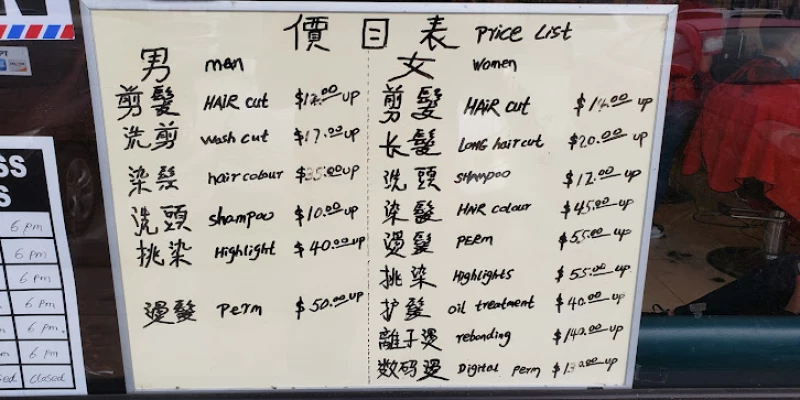 價目表 Price List
男 men
剪髮 HAIR cut $12.00 up
洗剪 wash cut $17.00 up
染髮 hair colour $35.00 up
洗頭 shampoo $10.00 up
挑染 Highlight $40.00 up
燙髮 Perm $50.00 up
女 Women
剪髮 HAIR cut $14.00 up
长髮 LONG hair cut $20.00 up
洗頭 SHAMPOO $12.00 up
染髮 HAIR colour $45.00 up
燙髮 PERM $55.00 up
挑染 Highlights $55.00 up
护髮 oil treatment $40.00 up
離子燙 rebonding $140.00 up
数码燙 Digital perm up
SS
S
6 pm
6 pm
6 pm
6 pm
6 pm
closed